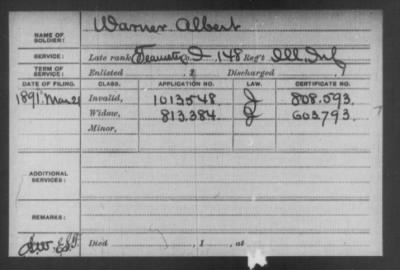 NAME OF SOLDIER: Warner Albert
SERVICE: Late rank Teamster, I, 148 Reg't Ill. Inf.
TERM OF SERVICE: Enlisted , 1 Discharged , 1
DATE OF FILING. CLASS. APPLICATION NO. LAW. CERTIFICATE NO.
1891 Mar 21 Invalid, 1013548 J 808.593.
Widow, 813.384. J 603793.
Minor,
ADDITIONAL SERVICES:
REMARKS:
Died , 1 , at